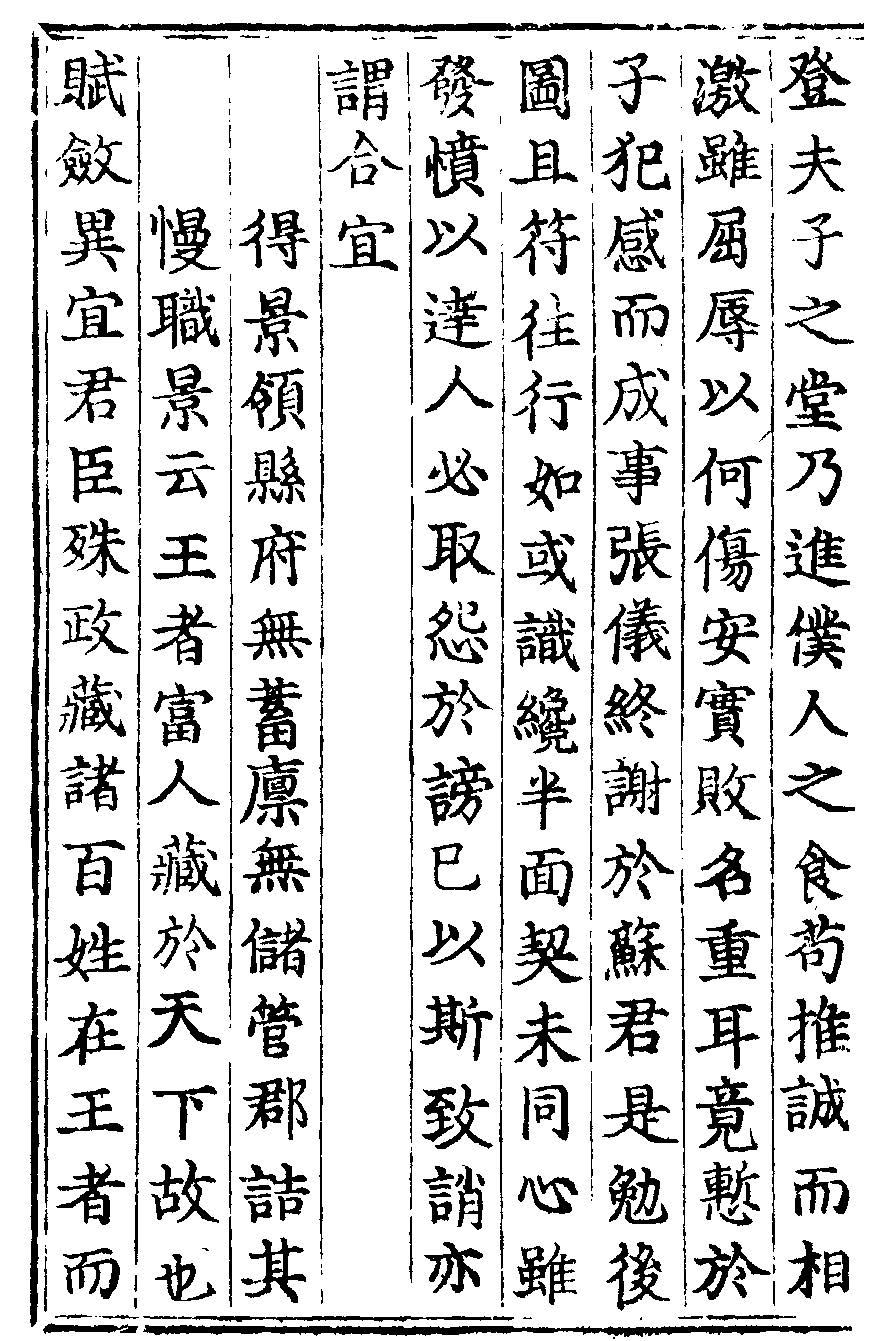 登夫子之堂乃進僕人之食苟推誠而相
激雖屈辱以何傷安實敗名重耳竟慙於
子犯感而成事張儀終謝於蘇君是勉後
圖且符往行如或識纔半面契未同心雖
發憤以達人必取怨於謗已以斯致誚亦
謂合宜
得景領縣府無蓄廪無儲管郡詰其
慢職景云王者富人藏於天下故也
賦斂異宜君臣殊政藏諸百姓在王者而